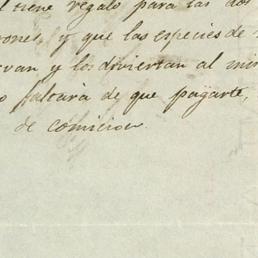 l tiene regalo para las dos
ones, y que las especies de
van y los diviertan al mi
o faltará de que pagarte,
de comicion